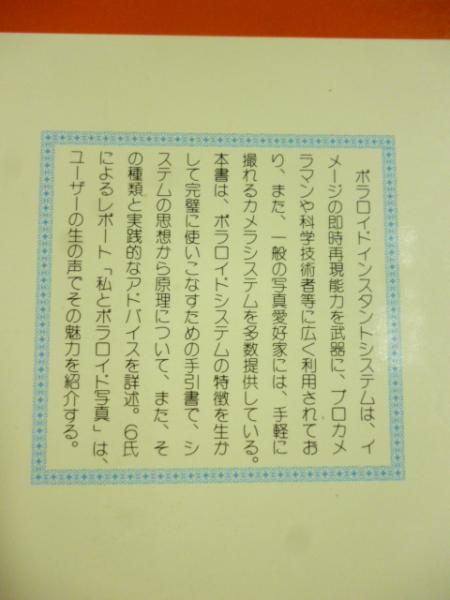 ポラロイドインスタントシステムは、イ
メージの即時再現能力を武器に、プロカメ
ラマンや科学技術者等に広く利用されてお
り、また、一般の写真愛好家には、手軽に
撮れるカメラシステムを多数提供している。
本書は、ポラロイドシステムの特徴を生か
して完璧に使いこなすための手引書で、シ
ステムの思想から原理について、また、そ
の種類と実践的なアドバイスを詳述。6氏
によるレポート「私とポラロイド写真」は、
ユーザーの生の声でその魅力を紹介する。